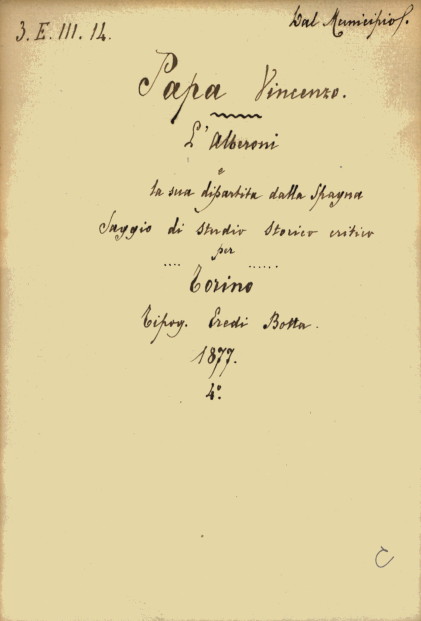 3. E. III. 14.
Dal Municipio
Papa Vincenzo.
L'Alberoni
e
la sua dipartita dalla Spagna
Saggio di studio storico critico
per
.... ......
Torino
Tipog. Eredi Botta.
1877.
4º.
C